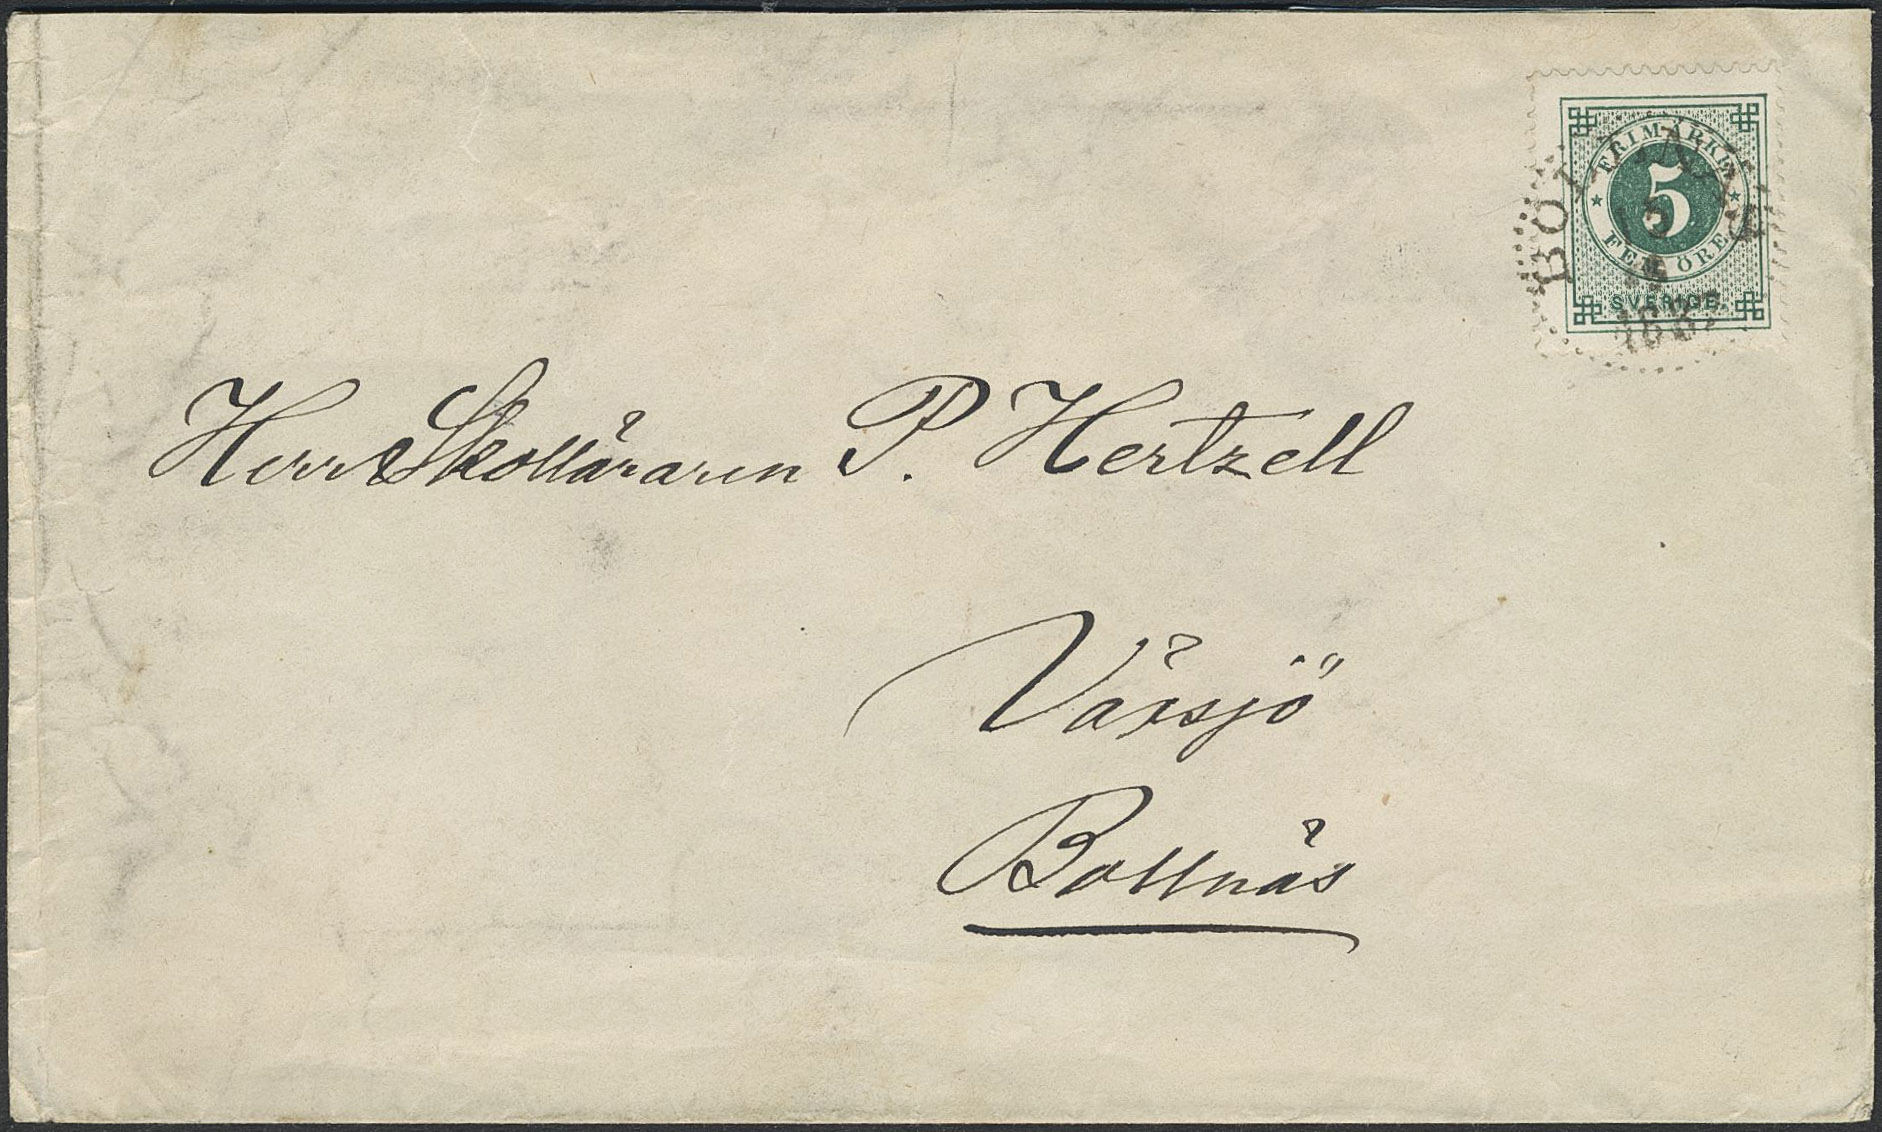 FRIMÄRKE
5
FEM ÖRE
SVERIGE.
Herr Skolläraren P. Hertzell
Växsjö
Bollnäs